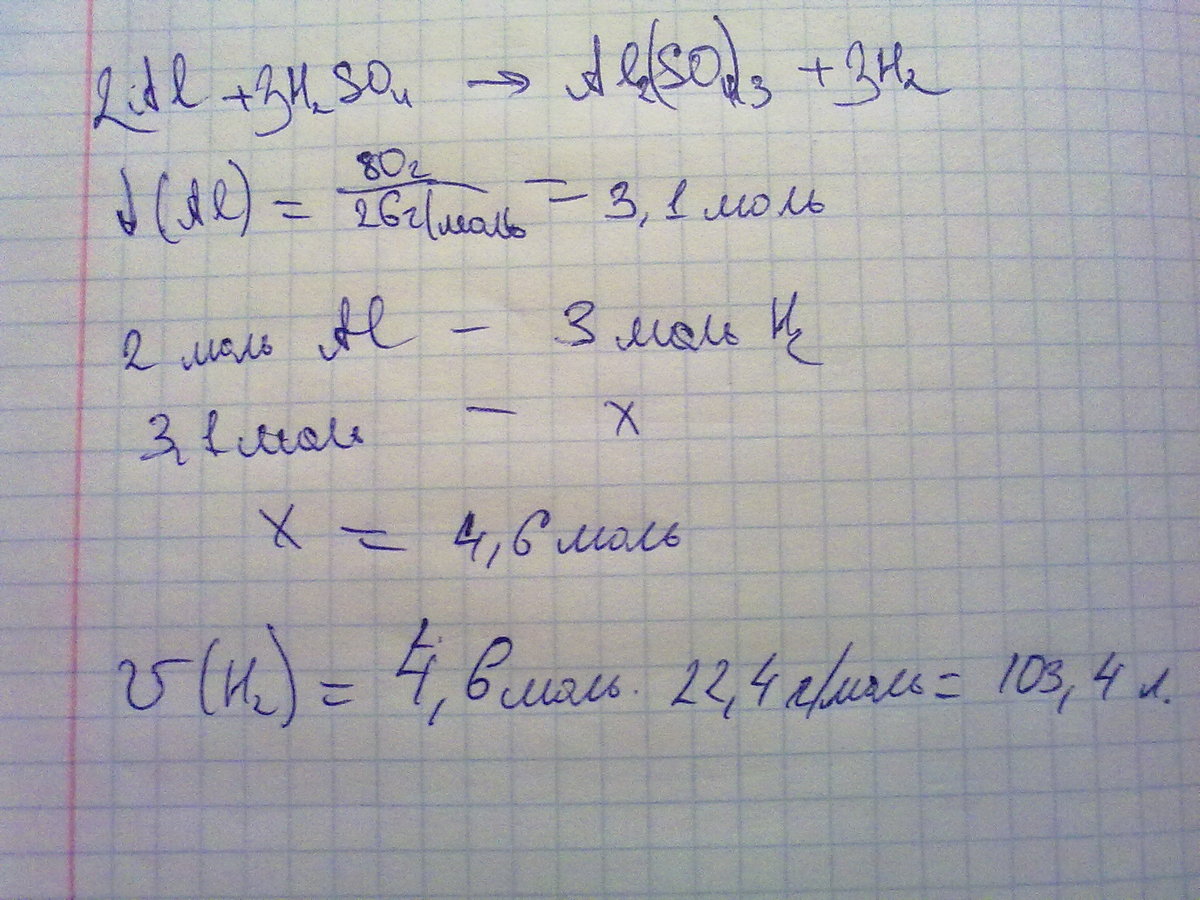 2Al + 3H₂SO₄ → Al₂(SO₄)₃ + 3H₂
ν(Al) = 80г / 26г/моль = 3,1 моль
2 моль Al – 3 моль H₂
3,1 моль – x
x = 4,6 моль
V(H₂) = 4,6 моль · 22,4 л/моль = 103,4 л.